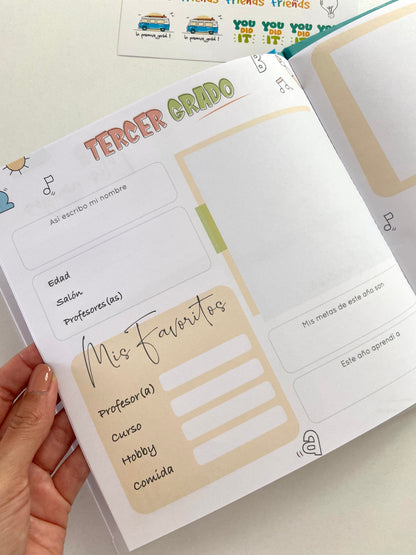 friends friends friends
la primera salida !
la primera salida !
YOU DID IT
YOU DID IT
YOU DID IT
YOU DID IT
TERCER GRADO
Así escribo mi nombre
Edad
Salón
Profesores(as)
Mis Favoritos
Profesor(a)
Curso
Hobby
Comida
Mis metas de este año son
Este año aprendí a